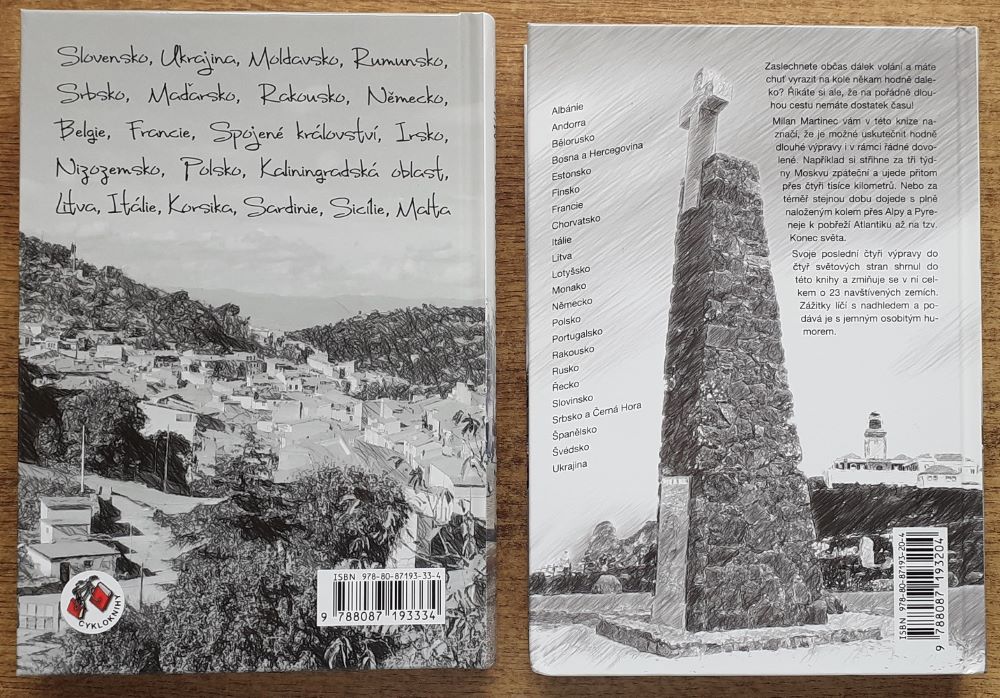 Slovensko, Ukrajina, Moldavsko, Rumunsko,
Srbsko, Maďarsko, Rakousko, Německo,
Belgie, Francie, Spojené království, Irsko,
Nizozemsko, Polsko, Kaliningradská oblast,
Litva, Itálie, Korsika, Sardinie, Sicílie, Malta
CYKLOKNIHY
ISBN 978-80-87193-33-4
9 788087 193334
Albánie
Andorra
Bělorusko
Bosna a Hercegovina
Estonsko
Finsko
Francie
Chorvatsko
Itálie
Litva
Lotyšsko
Monako
Německo
Polsko
Portugalsko
Rakousko
Rusko
Řecko
Slovinsko
Srbsko a Černá Hora
Španělsko
Švédsko
Ukrajina
Zaslechnete občas dálek volání a máte
chuť vyrazit na kole někam hodně dale-
ko? Říkáte si ale, že na pořádně dlou-
hou cestu nemáte dostatek času!
Milan Martinec vám v této knize na-
značí, že je možné uskutečnit hodně
dlouhé výpravy i v rámci řádné dovo-
lené. Například si střihne za tři týd-
ny Moskvu zpáteční a ujede přitom
přes čtyři tisíce kilometrů. Nebo za
téměř stejnou dobu dojede s plně
naloženým kolem přes Alpy a Pyre-
neje k pobřeží Atlantiku až na tzv.
Konec světa.
Svoje poslední čtyři výpravy do
čtyř světových stran shrnul do
této knihy a zmiňuje se v ní cel-
kem o 23 navštívených zemích.
Zážitky líčí s nadhledem a po-
dává je s jemným osobitým hu-
morem.
ISBN 978-80-87193-20-4
9 788087 193204